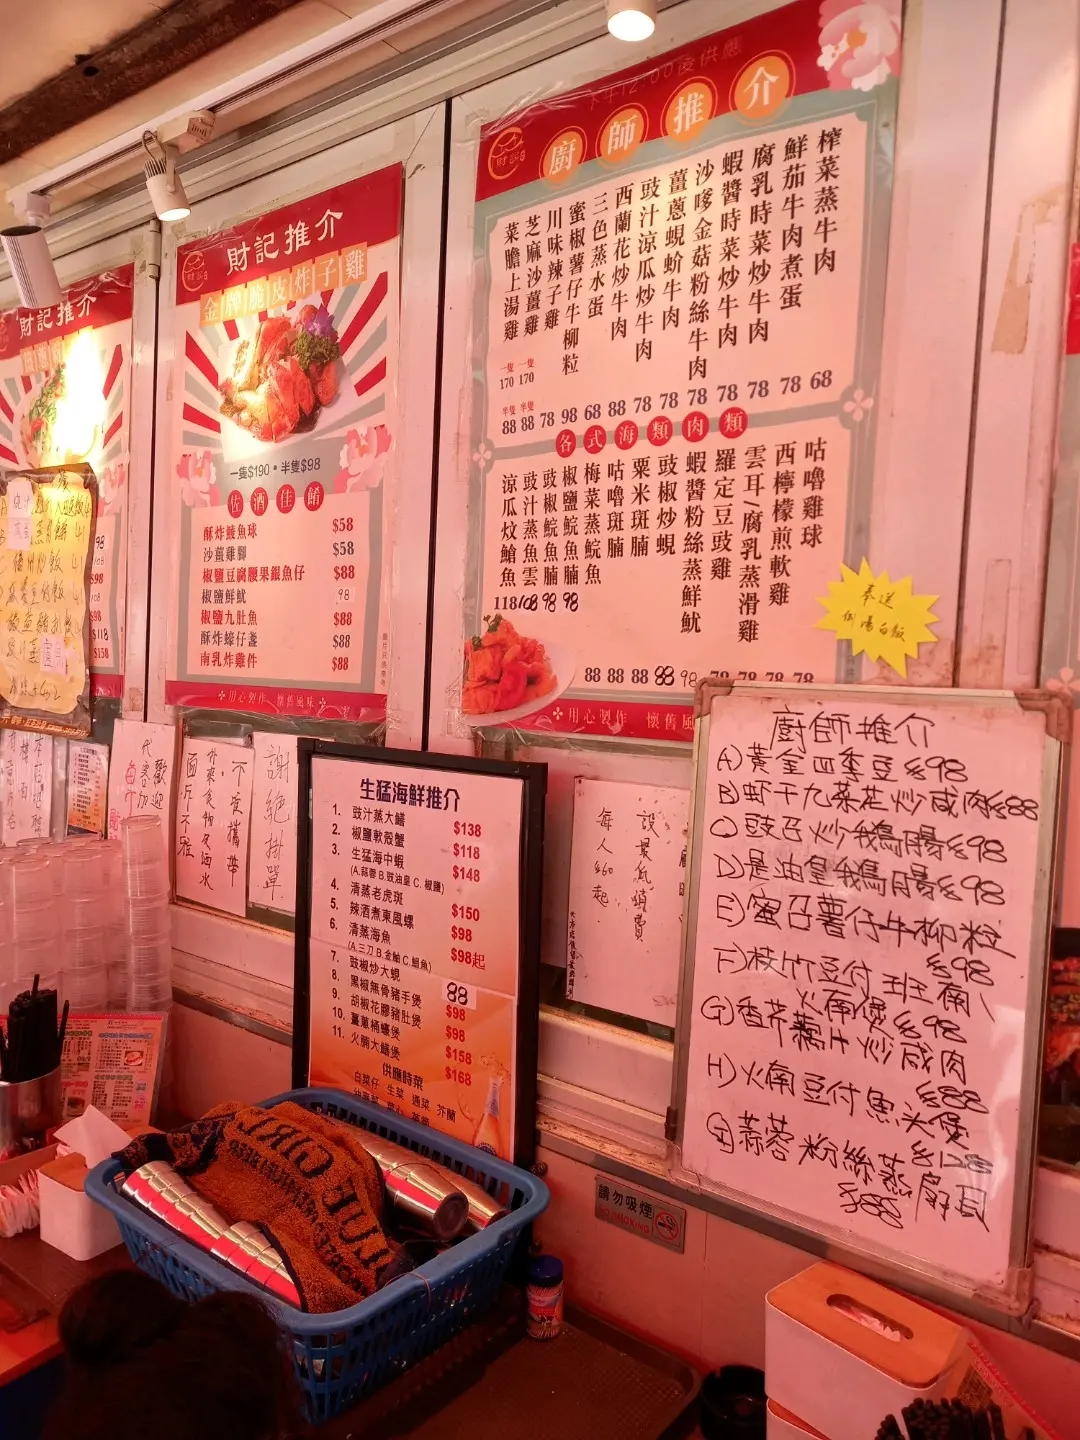 財記推介
財記推介
金牌脆皮炸子雞
一隻$190・半隻$98
佐酒佳餚
酥炸鯪魚球 $58
沙薑雞腳 $58
椒鹽豆腐腰果銀魚仔 $88
椒鹽鮮魷 98
椒鹽九肚魚 $88
酥炸蠔仔盞 $88
南乳炸雞件 $88
用心製作 懷舊風味
下午12:00後供應
廚師推介
榨菜蒸牛肉 68
鮮茄牛肉煮蛋 78
腐乳時菜炒牛肉 78
蝦醬時菜炒牛肉 78
沙嗲金菇粉絲牛肉 78
薑蔥蜆蚧牛肉 78
豉汁涼瓜炒牛肉 78
西蘭花炒牛肉 88
三色蒸水蛋 68
蜜椒薯仔牛柳粒 98
川味辣子雞 78
芝麻沙薑雞 一隻 170 半隻 88
菜膽上湯雞 一隻 170 半隻 88
各式海鮮肉類
咕嚕雞球 78
西檸檬煎軟雞 78
雲耳/腐乳蒸滑雞 78
羅定豆豉雞 78
蝦醬粉絲蒸鮮魷 98
豉椒炒蜆 88
粟米斑腩 88
咕嚕斑腩 88
梅菜蒸鯇魚 88
椒鹽鯇魚腩 98
豉椒鯇魚腩 98
豉汁蒸魚雲 108
涼瓜炆鱠魚 118
用心製作 懷舊風
奉送
例湯白飯
歡迎
代客加
謝絕掛單
不設攜帶
外來食物及酒水
設最低消費
每人$60起
生猛海鮮推介
1. 豉汁蒸大鱔 $138
2. 椒鹽軟殼蟹 $118
3. 生猛海中蝦 $148
(A.蒜蓉 B.豉油皇 C.椒鹽)
4. 清蒸老虎斑 $150
5. 辣酒煮東風螺 $98
6. 清蒸海魚 $98起
7. 豉椒炒大蜆 88
8. 黑椒無骨豬手煲 $98
9. 胡椒花膠豬肚煲 $98
10. 薑蔥桶蠔煲 $158
11. 火腩大鱔煲 $168
供應時菜
白菜仔 生菜 通菜 芥蘭
廚师推介
A)黃金四季豆$98
B)虾干九菜花炒咸肉$88
C)豉召炒鵝腸$98
D)是油皇鵝腸$98
E)蜜召薯仔牛柳粒
$98
F)枝竹豆付班腩
火腩煲$98
G)香芹藕片炒咸肉
$88
H)火腩豆付魚头煲
$128
蒜蓉粉絲蒸扇貝
$88
請勿吸煙
NO SMOKING